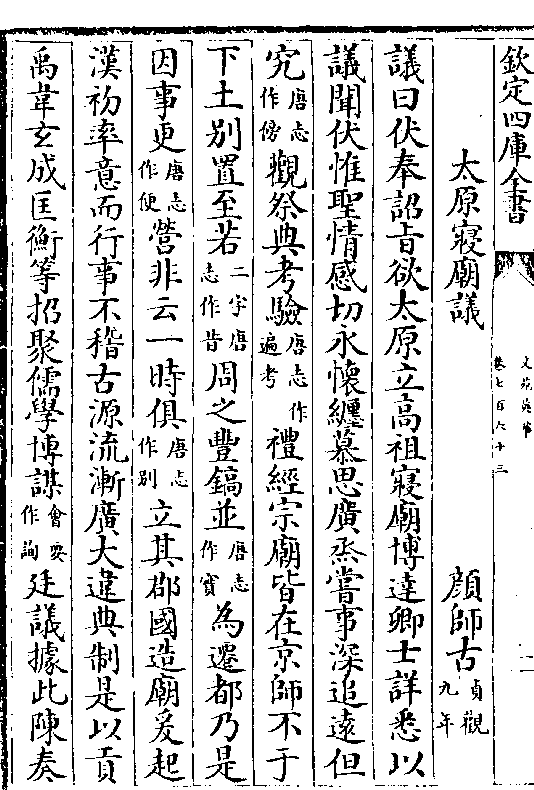 欽定四庫全書
文苑英華
卷七百六十三
太原寢廟議
顔師古貞觀九年
議曰伏奉詔旨欲太原立高祖寢廟博達卿士詳悉以
議聞伏惟聖情感切永懷纒慕思廣烝嘗事深追遠但
究唐志作傍觀祭典考驗唐志作遍考禮經宗廟皆在京師不于
下土别置至若二字唐志作昔周之豐鎬並唐志作實為遷都乃是
因事更唐志作便營非云一時俱唐志作別立其郡國造廟爰起
漢初率意而行事不稽古源流漸廣大違典制是以貢
禹韋玄成匡衡等招聚儒學博謀會要作詢廷議據此陳奏